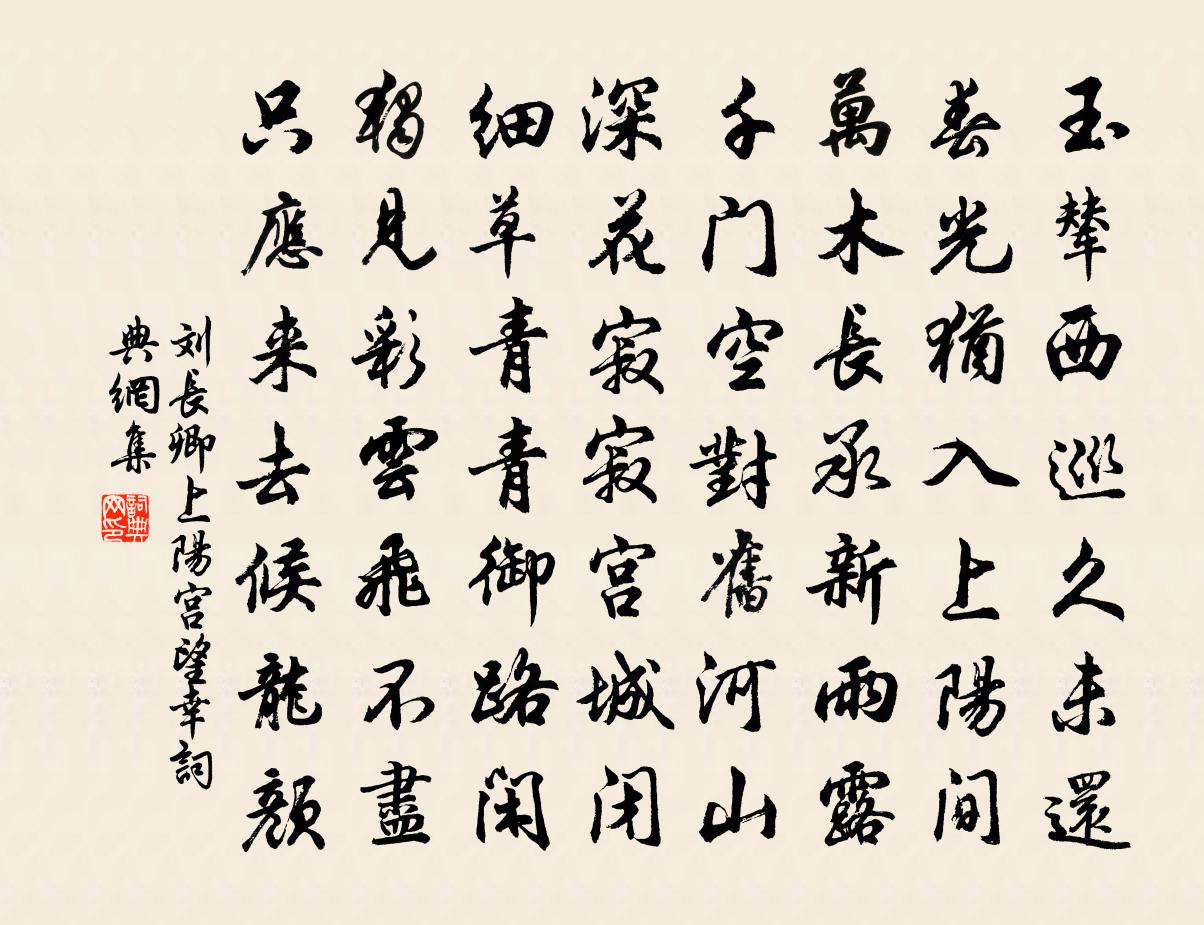 玉輦西巡久未還
春光猶入上陽間
萬木長承新雨露
千门空對舊河山
深花寂寂宫城闭
細草青青御路闲
獨見彩雲飛不盡
只應来去候龍顏
刘長卿上陽宫望幸詞
典網集
詞典网印